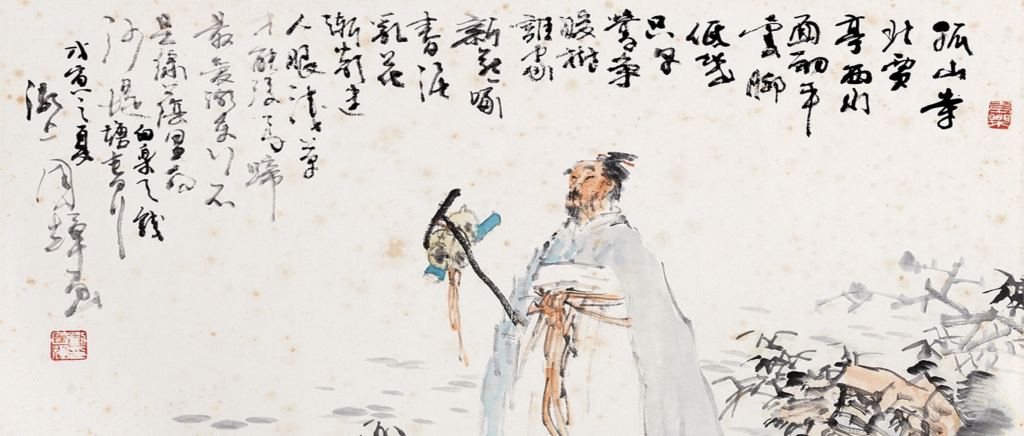 孤山寺
北賈
亭西水
面初平
雲腳
低幾
処早
鶯爭
暖樹
誰家
新燕啄
春泥
亂花
漸欲迷
人眼淺草
才能沒馬蹄
最愛湖東行不
足綠蔭里白
沙堤
白樂天錢
塘春行
戊寅之夏